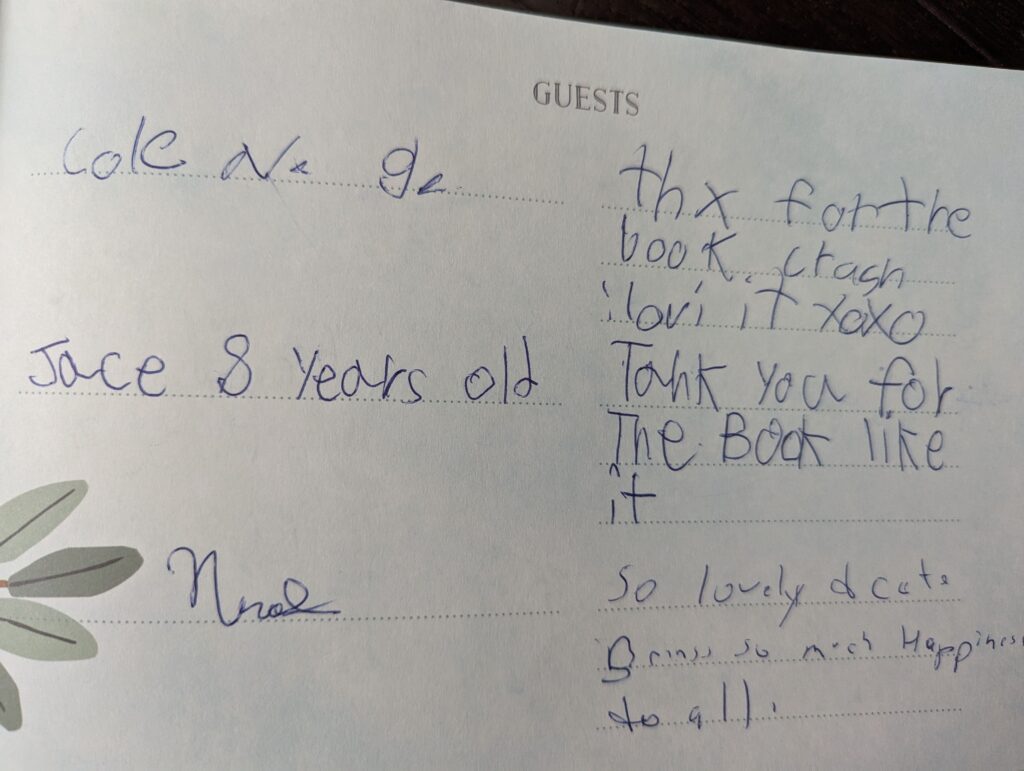 GUESTS
Cole
thx for the
book. crash
i lovi it xoxo
Jace 8 years old
Tahk you for
The Book like
it
So lovely & cute
Brings so much Happiness
to all!